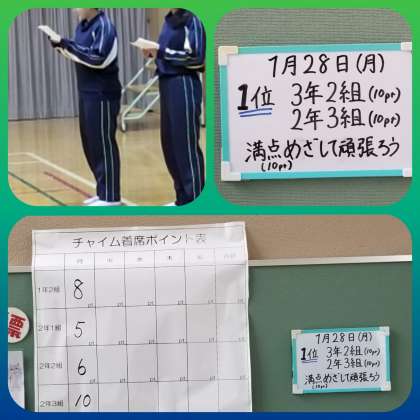 1月28日(月)
1位 3年2組(10pt)
2年3組(10pt)
満点めざして頑張ろう
(10pt)
チャイム着席ポイント表
月 火 水 木 金
1年2組 8 pt pt pt pt pt pt
2年1組 5 pt pt pt pt pt pt
2年2組 6 pt pt pt pt pt pt
2年3組 10
票
1月28日(月)
1位 3年2組(10pt)
2年3組(10pt)
満点めざして頑張ろう
(10pt)